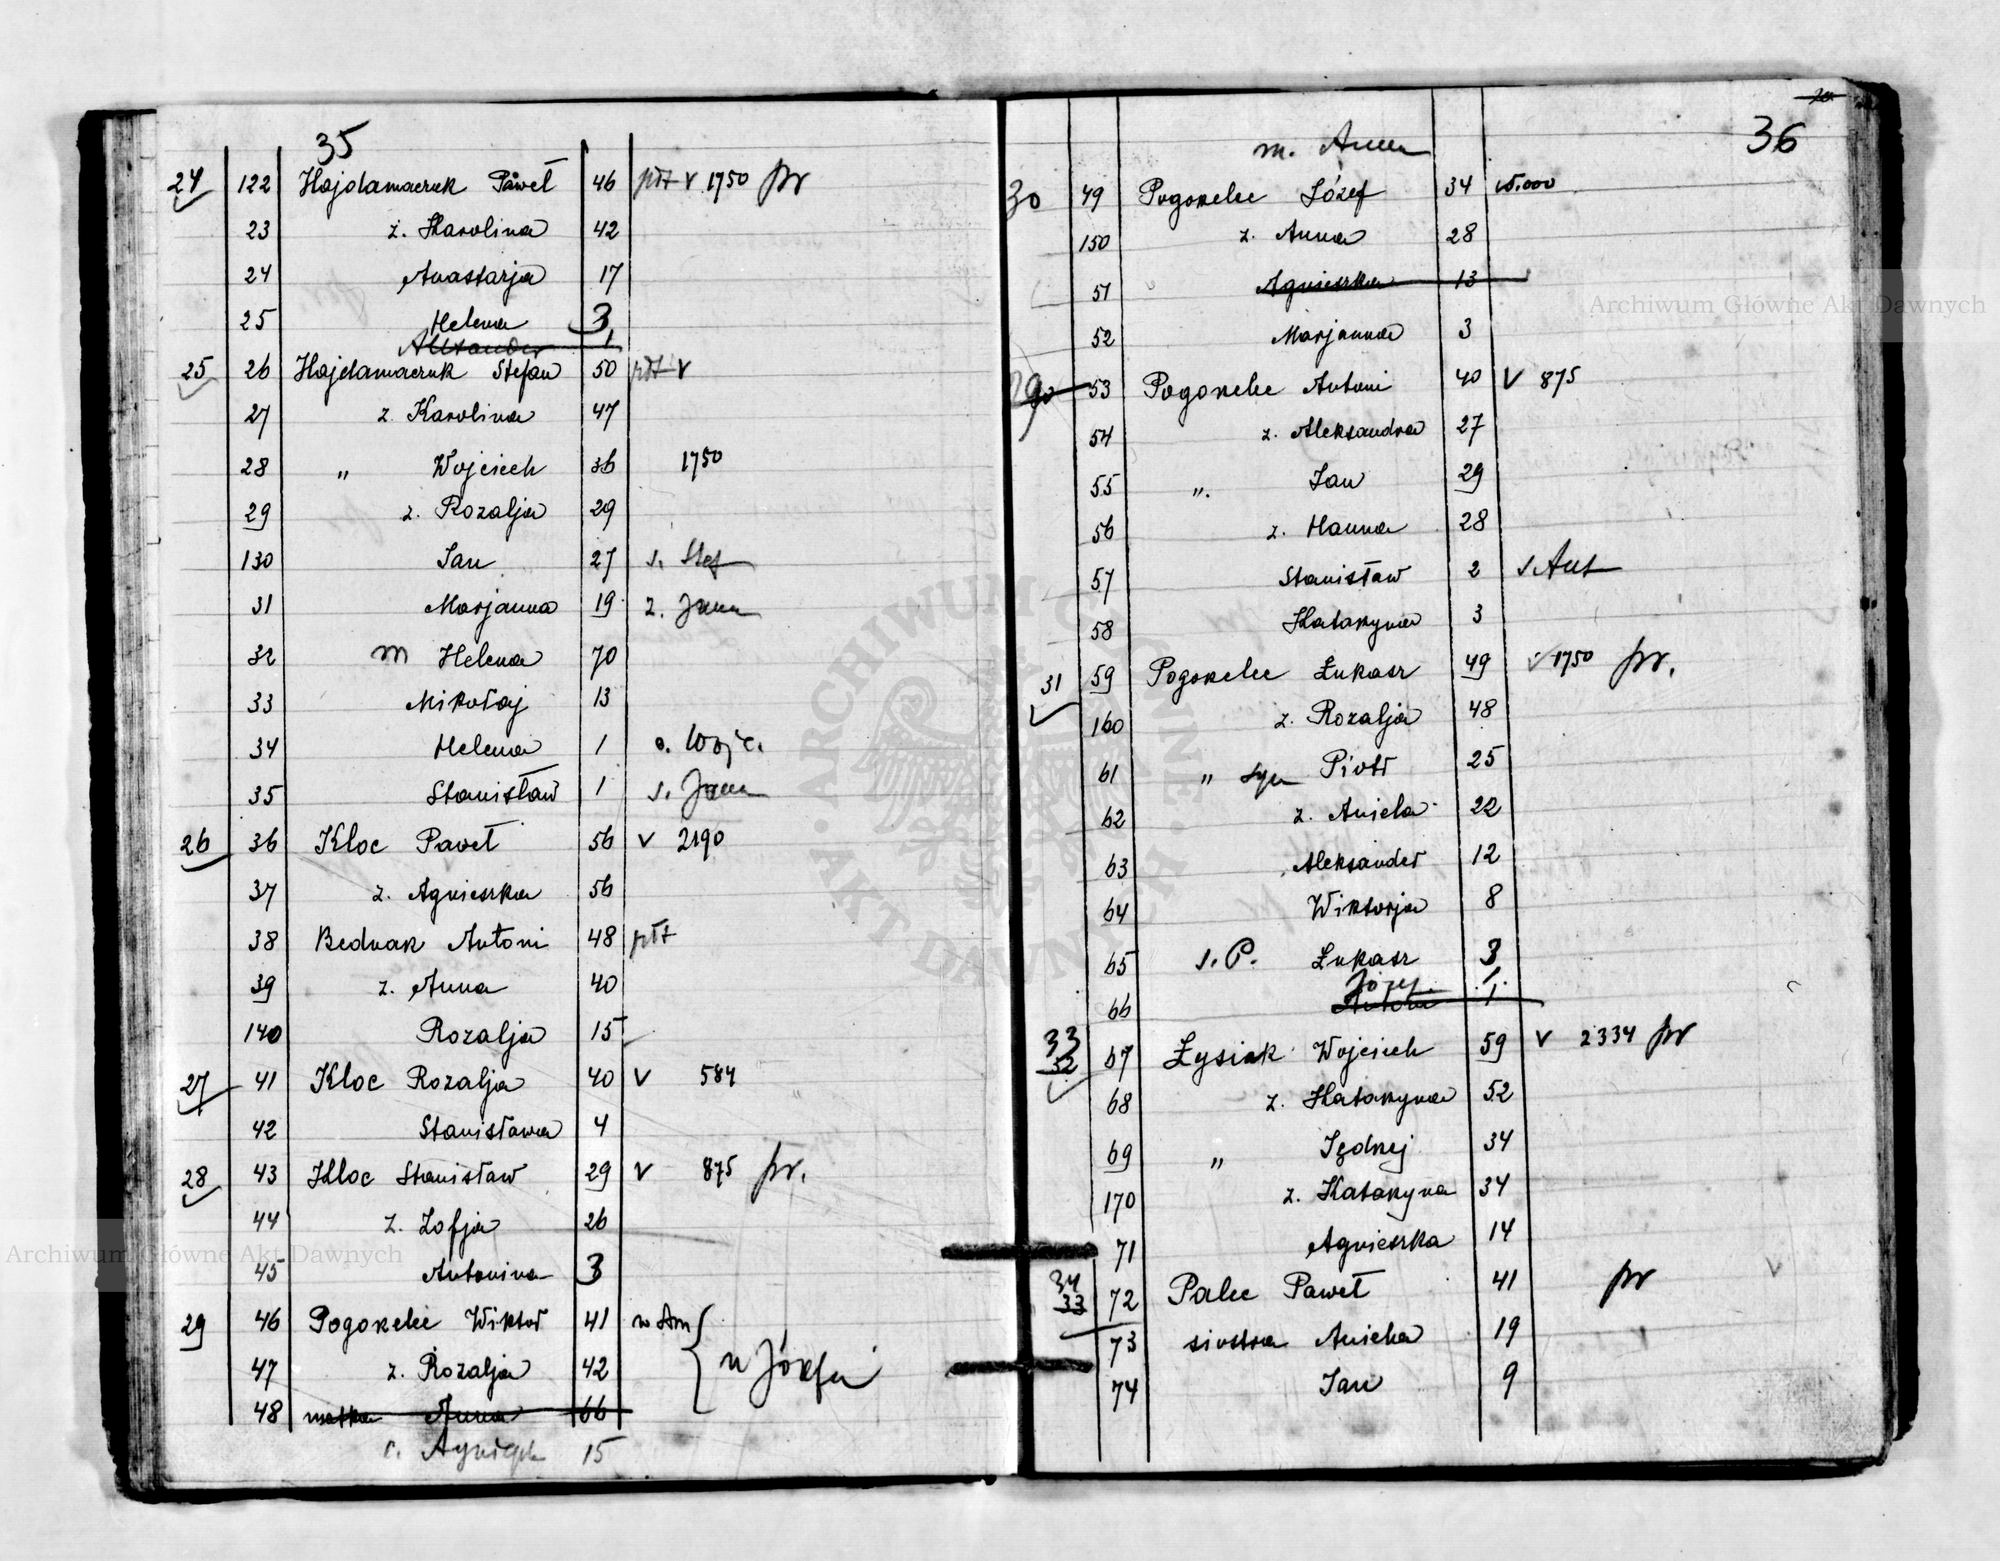 35
24 122 Hajdamaczuk Paweł 46 płt v 1750 pr
23 ż. Karolina 42
24 Anastazja 17
25 Helena 3
Alexander 1
25 26 Hajdamaczuk Stefan 50 płt v
27 ż. Karolina 47
28 " Wojciech 36 1750
29 ż. Rozalja 29
130 Jan 27 s. Stef
31 Marjanna 19 ż. Jana
32 m Helena 70
33 Mikołaj 13
34 Helena 1 c. Wojc.
35 Stanisław 1 s. Jana
26 36 Kloc Paweł 56 v 2190
37 ż. Agnieszka 56
38 Bednak Antoni 48 płt
39 ż. Anna 40
140 Rozalja 15
27 41 Kloc Rozalja 40 v 584
42 Stanisława 4
28 43 Kloc Stanisław 29 v 875 pr.
44 ż. Zofja 26
45 Antonina 3
29 46 Pogorzelec Wiktor 41 w Am
47 ż. Rozalja 42 u Józefa
48 matka Anna 66
c. Agnieszk 15
20
36
m. Anna
30 49 Pogorzelec Józef 34 15.000
150 ż. Anna 28
51 Agnieszka 13
52 Marjanna 3
53 Pogorzelec Antoni 40 v 875
54 ż. Aleksandra 27
55 ". Jan 29
56 ż. Hanna 28
57 Stanisław 2 s Ant
58 Katarzyna 3
31 59 Pogorzelec Łukasz 49 v 1750 pr.
160 ż. Rozalja 48
61 " syn Piotr 25
62 ż. Aniela 22
63 Aleksander 12
64 Wiktorja 8
65 s. P. Łukasz 3
Józef 1
66 Antoni 1
33
32 67 Łysiak Wojciech 59 v 2334 pr
68 ż. Katarzyna 52
69 " Jędrzej 34
170 ż. Katarzyna 34
71 Agnieszka 14
34
33 72 Palec Paweł 41 pr
73 siostra Aniela 19
74 Jan 9
Archiwum Główne Akt Dawnych
Archiwum Główne Akt Dawnych
ARCHIWUM GŁÓWNE AKT DAWNYCH